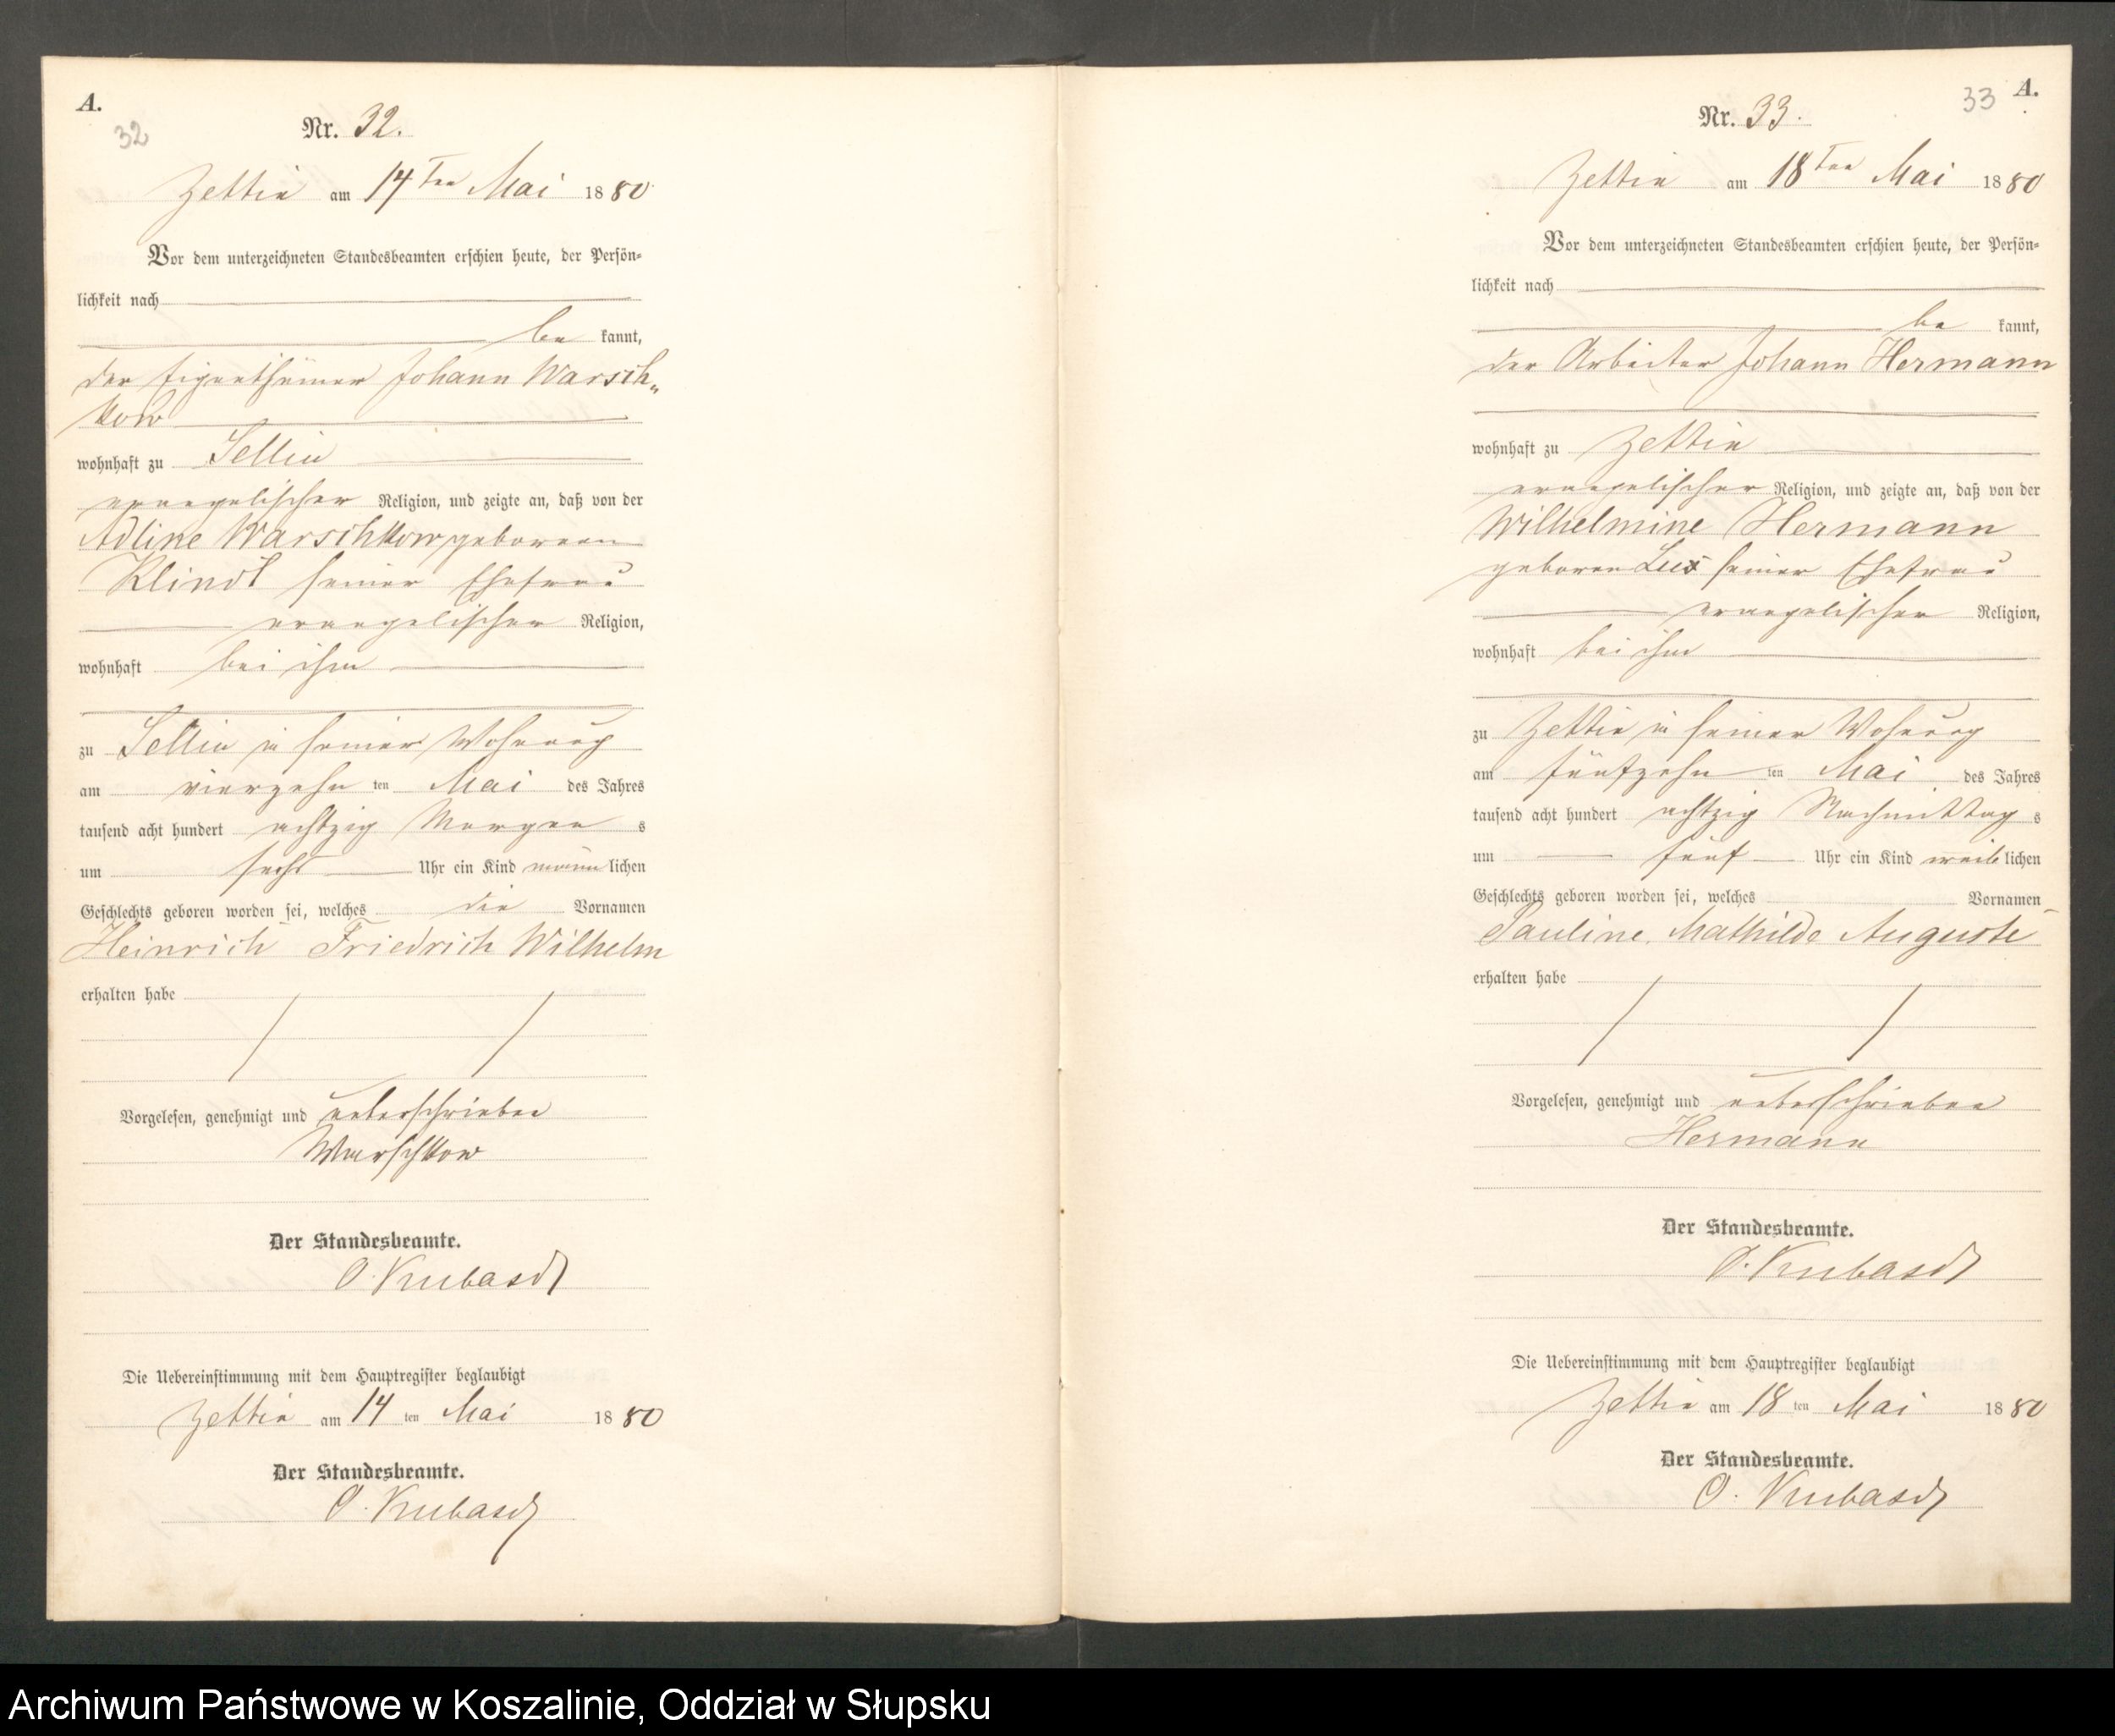 A.
32
Nr. 32.
Zettin am 14ten Mai 1880
Vor dem unterzeichneten Standesbeamten erschien heute, der Persön-
lichkeit nach
be kannt,
der Eigenthümer Johann Warsch„
kow
wohnhaft zu Sellin
evangelischer Religion, und zeigte an, daß von der
Adline Warschkow geborenen
Klindt seiner Ehefrau
evangelischer Religion,
wohnhaft bei ihm
zu Sellin in seiner Wohnung
am vierzehn ten Mai des Jahres
tausend acht hundert achtzig Morgen s
um sechs Uhr ein Kind männ lichen
Geschlechts geboren worden sei, welches die Vornamen
Heinrich Friedrich Wilhelm
erhalten habe
Vorgelesen, genehmigt und unterschrieben
Warschkow
Der Standesbeamte.
O. Kubasch
Die Uebereinstimmung mit dem Hauptregister beglaubigt
Zettin am 14 ten Mai 1880
Der Standesbeamte.
O. Kubasch
33 A.
Nr. 33.
Zettin am 18ten Mai 1880
Vor dem unterzeichneten Standesbeamten erschien heute, der Persön-
lichkeit nach
be kannt,
der Arbeiter Johann Hermann
wohnhaft zu Zettin
evangelischer Religion, und zeigte an, daß von der
Wilhelmine Hermann
geboren Lux seiner Ehefrau
evangelischer Religion,
wohnhaft bei ihm
zu Zettin in seiner Wohnung
am fünfzehn ten Mai des Jahres
tausend acht hundert achtzig Nachmittag s
um fünf Uhr ein Kind weib lichen
Geschlechts geboren worden sei, welches Vornamen
Pauline Mathilde Auguste
erhalten habe
Vorgelesen, genehmigt und unterschrieben
Hermann
Der Standesbeamte.
O. Kubasch
Die Uebereinstimmung mit dem Hauptregister beglaubigt
Zettin am 18 ten Mai 1880
Der Standesbeamte.
O. Kubasch
Archiwum Państwowe w Koszalinie, Oddział w Słupsku